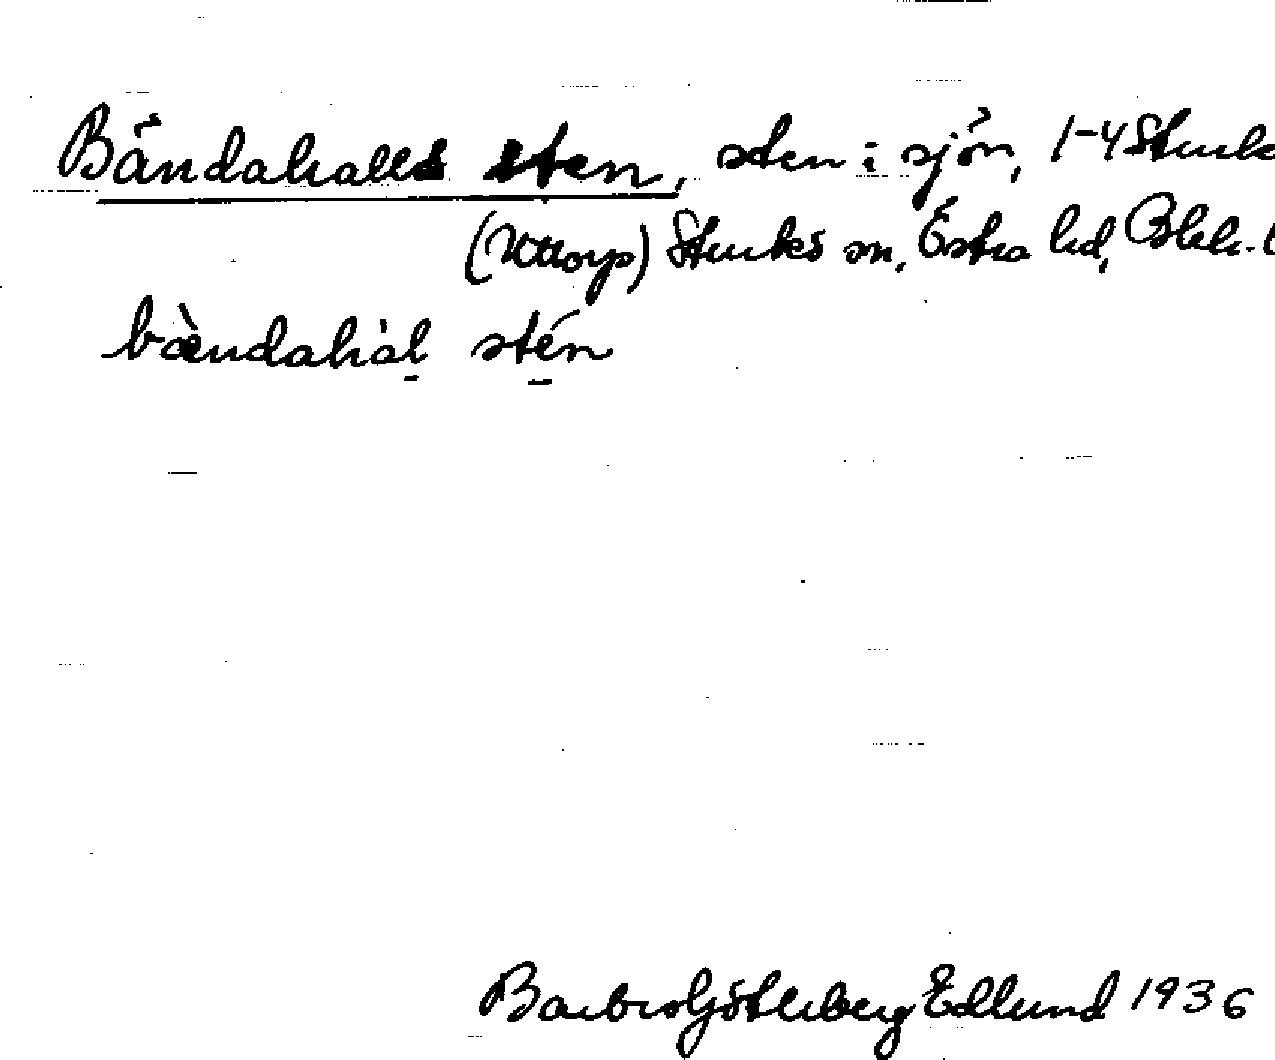 Bändahalls sten, sten i sjön, 1-4 Sturkö
(Uttorp) Sturkö sn, Östra hd, Blek. l
bændahàl stén
Barbro Götherberg Edlund 1936